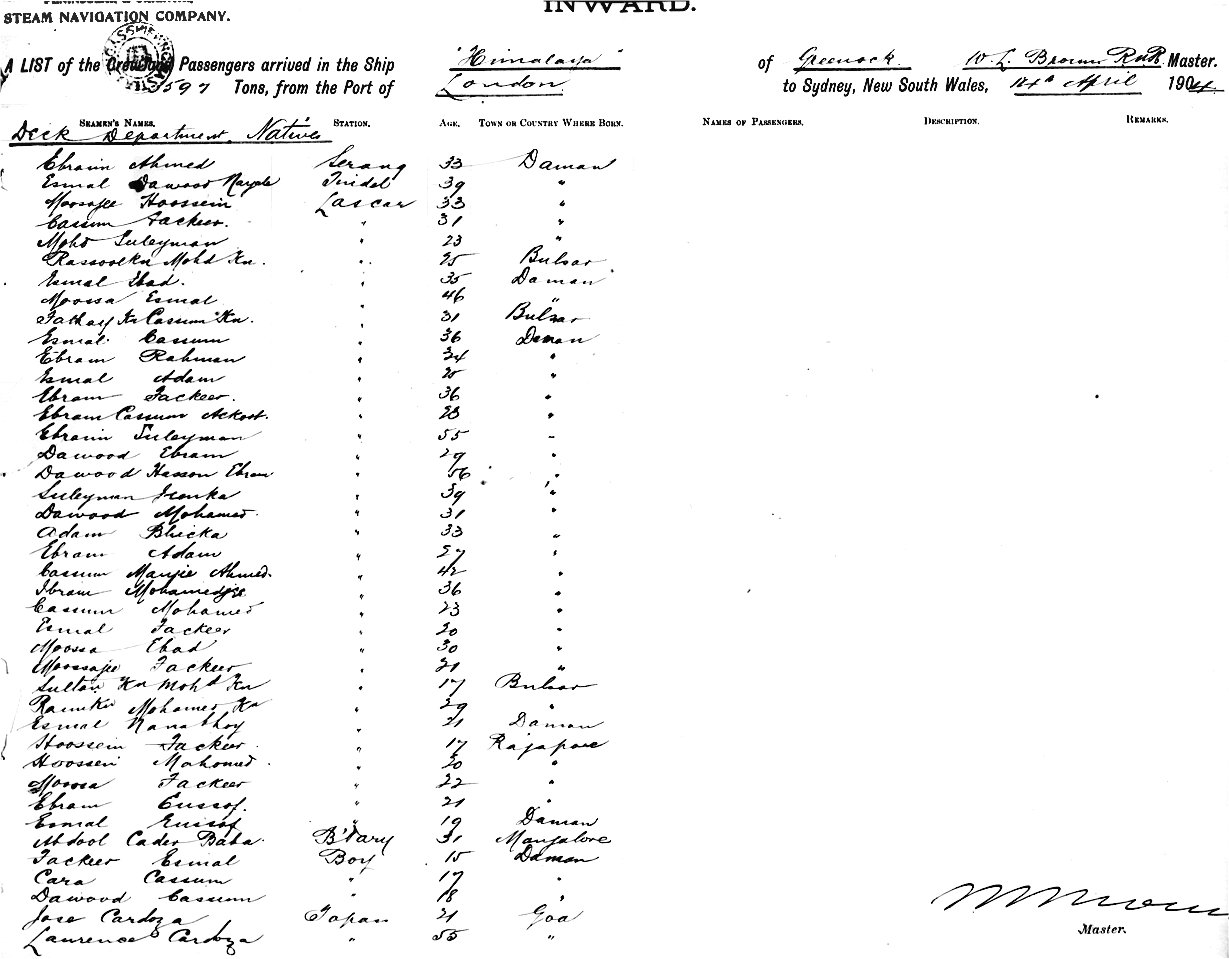 STEAM NAVIGATION COMPANY.
INWARD.
A LIST of the Crew and Passengers arrived in the Ship "Himalaya" of Greenock W. L. Broun RNR Master.
3597 Tons, from the Port of London to Sydney, New South Wales, 14th April 1904.
SEAMEN'S NAMES. STATION. AGE. TOWN OR COUNTRY WHERE BORN. NAMES OF PASSENGERS. DESCRIPTION. REMARKS.
Deck Department, Natives
Ebraim Ahmed Serang 33 Daman
Esmal Dawood Tindel 39 "
Moosajee Hoossein Lascar 33 "
Cassum Fackeer. " 31 "
Mohd Suleyman " 23 "
Rassoolkn Mohd Kn. " 25 Bulsar
Esmal Ebad. " 35 Daman
Moossa Esmal " 46 "
Kn Cassum Kn. " 31 Bulsar
Esmal Cassum " 36 Daman
Ebram Rahman " 34 "
Esmal Adam " "
Ebram Fackeer. " 36 "
Ebram Cassum " 28 "
Ebraim Suleyman " 55 "
Dawood Ebram " 29 "
Dawood Hasson Ebram " 56 "
Suleyman " 39 "
Dawood Mohamed. " 31 "
Adam Bhicka " 33 "
Ebram Adam " 27 "
Cassum Manjie Ahmed. " 42 "
Ibram Mohamedjee " 36 "
Cassum Mohamed " 23 "
Esmal Fackeer " 20 "
Moossa Ebad " 30 "
Moossajee Fackeer " 21 "
Sultan Kn Mohd Kn " 17 Bulsar
Mohamed Kn " 29 "
Esmal Nanabhoy " 21 Daman
Hoossein Fackeer. " 17 Rajapore
Hoossein Mahomed. " 20 "
Moossa Fackeer " 22 "
Ebram Eussof. " 21 "
Esmal Eussof " 19 Daman
Abdool Cader Baba. B'tary 31 Mangalore
Fackeer Esmal Boy 15 Daman
Cara Cassum " 17 "
Dawood Cassum " 18 "
Jose Cardoza Topan 21 Goa
Laurence Cardoza " 55 "
Master.